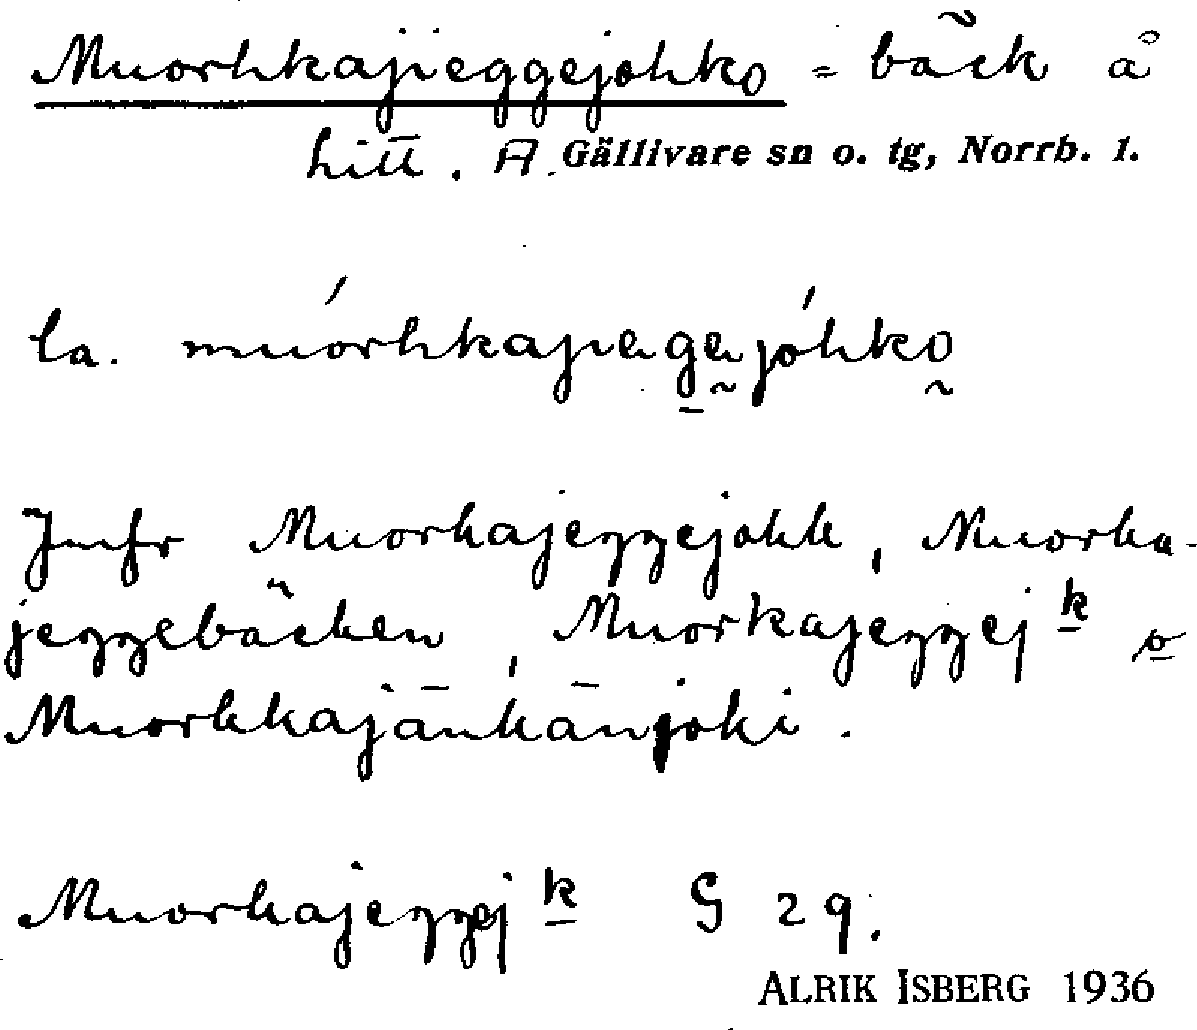 Muorhkajieggejohko = bäck å
hitt. A. Gällivare sn o. tg, Norrb. l.
la. muórhkajiegejóhko
Jmfr Muorkajeggejokk, Muorka-
jeggebäcken, Muorkajeggej k o
Muorkkajänkänjoki.
Muorkajeggej k G 29.
ALRIK ISBERG 1936